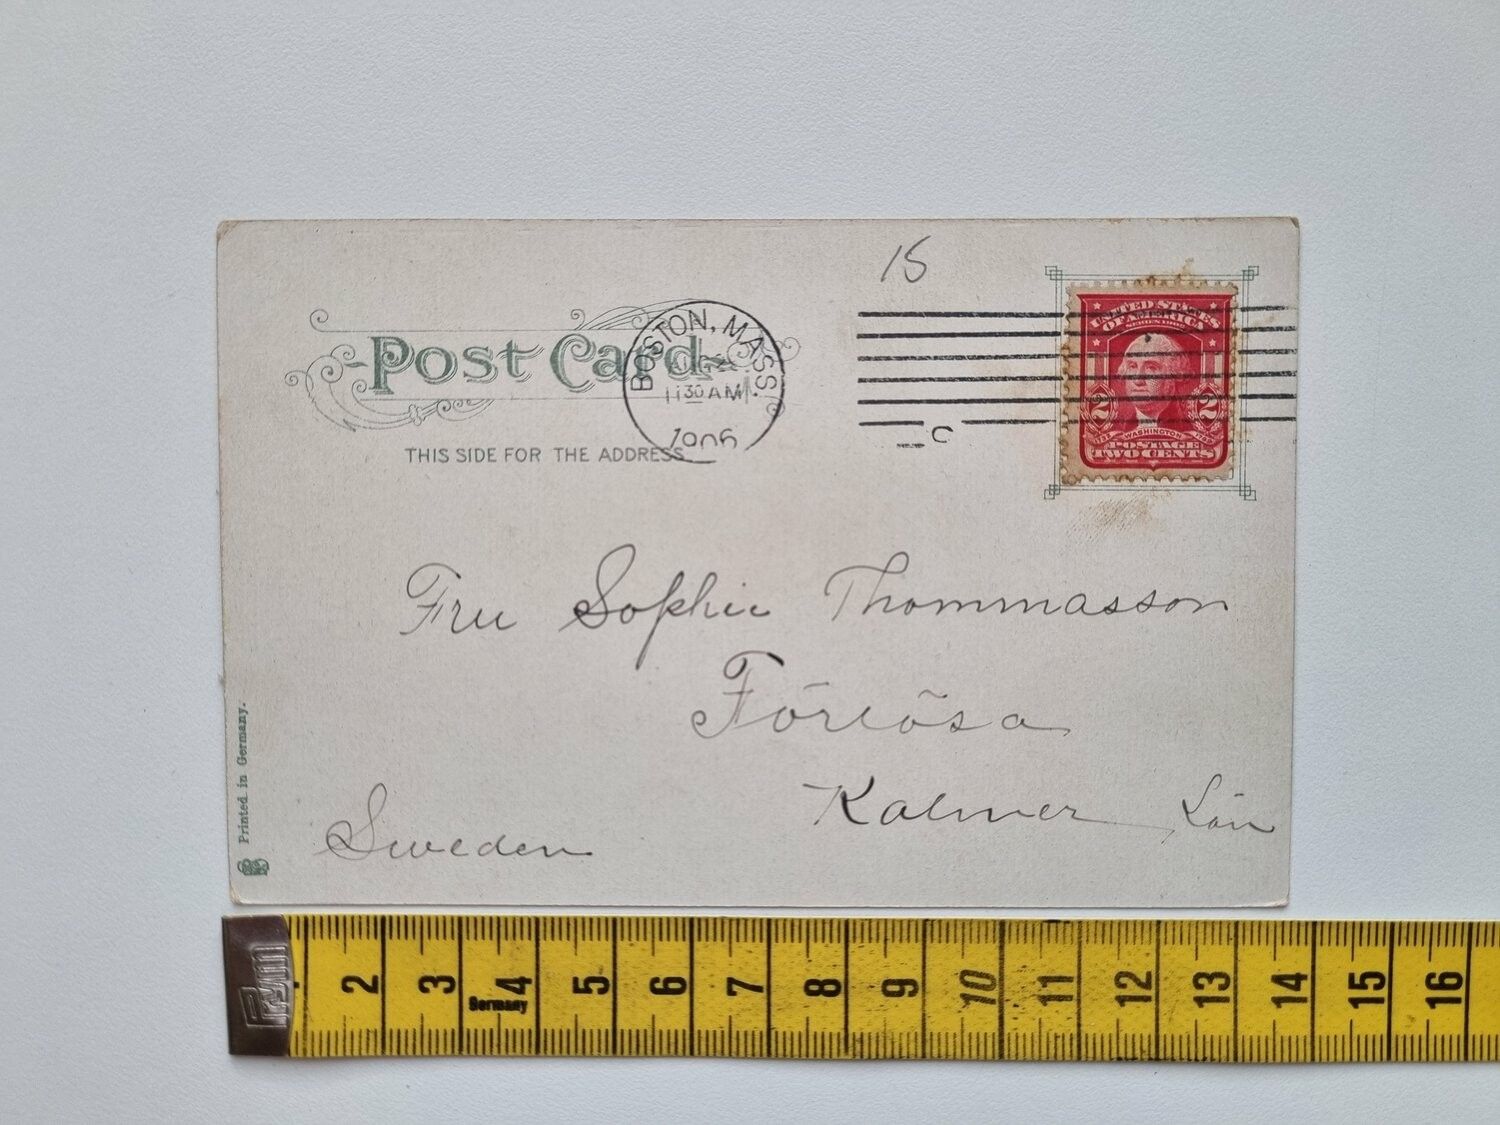 15
UNITED STATES
OF AMERICA
SERIES 1902
WASHINGTON
2 2
POSTAGE
TWO CENTS
Post Card
BOSTON, MASS.
11 30 AM
1906
C
THIS SIDE FOR THE ADDRESS
Fru Sophie Thommasson
Förlösa
Kalmer Län
Sweden
Printed in Germany.
2 3 4 5 6 7 8 9 10 11 12 13 14 15 16
Germany